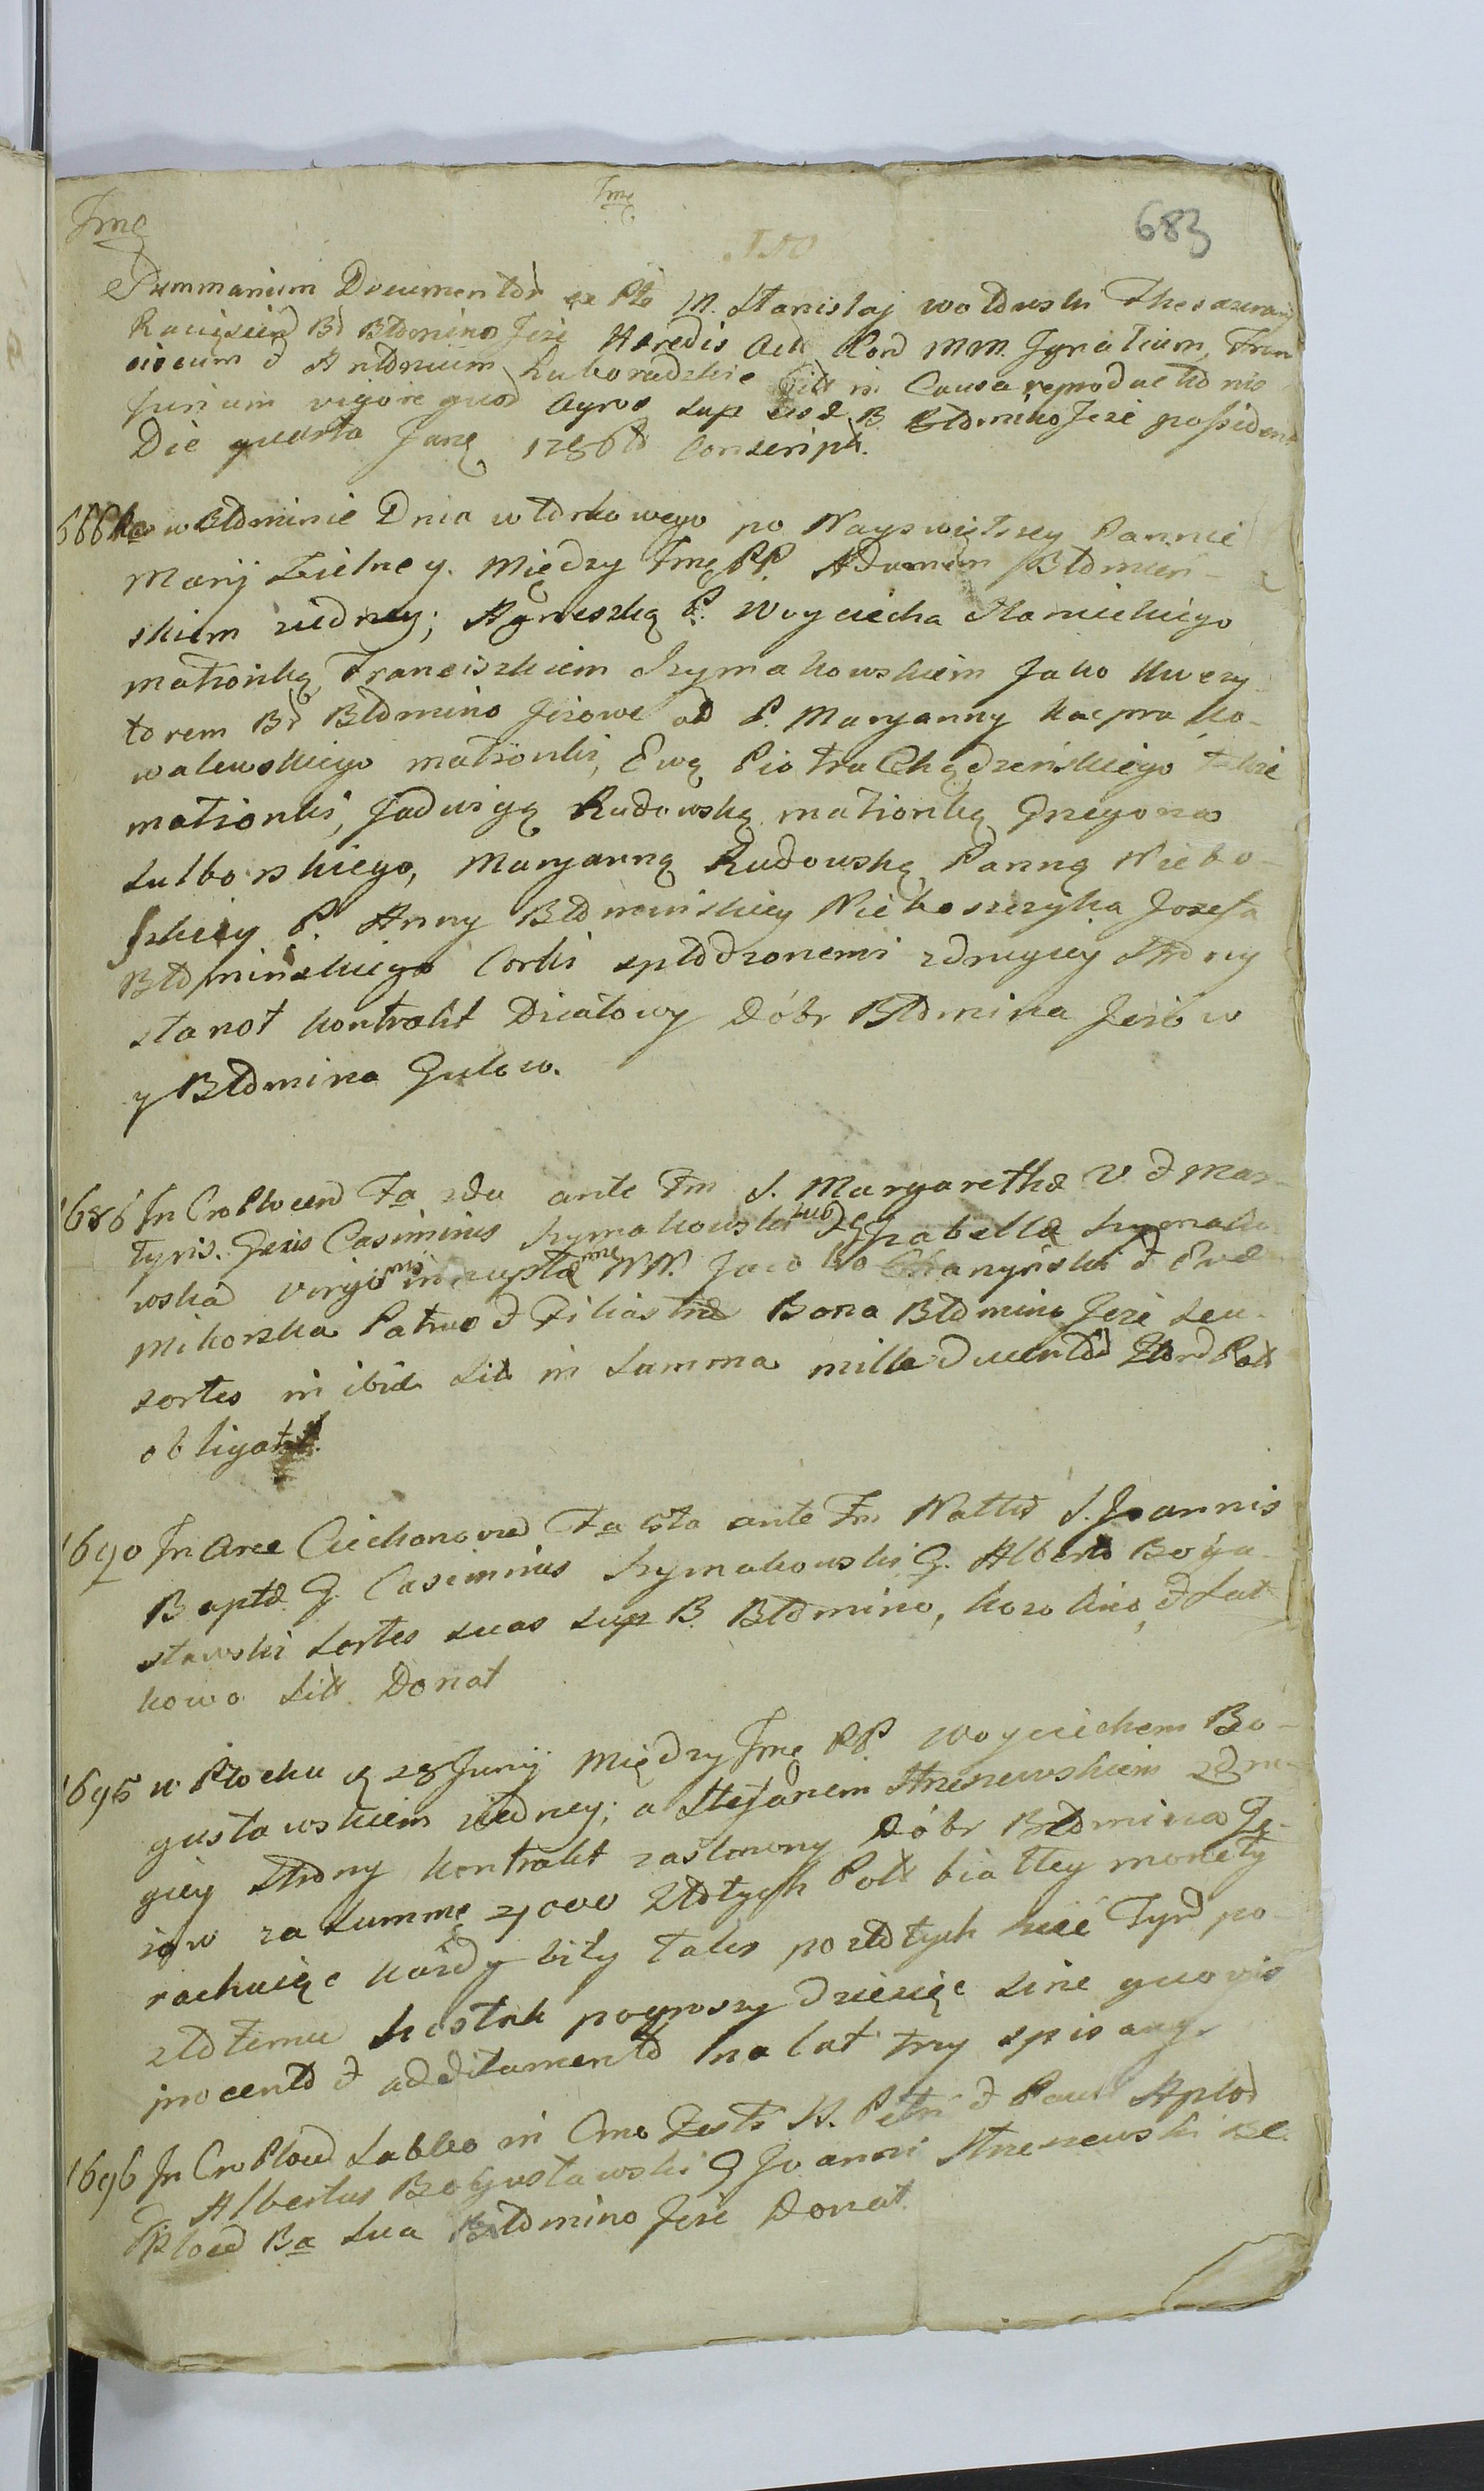 Jmę
Jmę
683
Summarium Documentor ex Pte M. Stanislaj wołowski Thesaurarij
Raciącień Bo Błomino Jeże Hæredis Act Rond MM. Ignatium, Fran
ciscum & Antonium Luboradzkie Citt in Causa reproductionis
jurium vigore quod agros sup eisd B. Błomino Jeże possident
Die quarta Janę conscript.
w Błominie Dnia wtorkowego po Nayswiętszey Pannie
Marij Zielney. Między Jmę PP. Adamem Błomiń-
skiem ziedney; Agneszką P. Woyciecha Stanickiego
małżonką Franciszkiem Szymakowskiem Jako Kwezy-
torem Bo Błomino Jeżowe od P. Maryanny Kacpra Ko-
walewskiego małżonki, Ewą Piotra Chądzeńskiego także
małżonki, Jadwigą Rudowską małżonką Grzegorza
Sulborskiego, Maryanną Rudowską Panną Niebo-
szkiey P. Anny Błomińskiey Nieboszczyka Jozefa
Błomińskiego Corki spłodzonemi zdrugiey Strony
stanoł kontrakt Działowy Dóbr Błomina Jeżow
y Błomina Gulow.
1686 In Cro Plocen Fa 2da ante Fm S. Margarethæ V. & Mar-
tyris. Gsus Casimirus Szymakowski Izabellæ Szymako
wska Virgo innuptæ NN. Jacobo & Evæ
Mikorska Patruo & Filiastræ Bona Błomino Jeże seu
sortes in ibid Sit in Summa mille ducentor Flor Pol
obligat.
1690 In Arce Ciechanovien Fa 6ta ante Fm Nattis S. Joannis
Baptæ G. Casimirus Szymakowski G. Alberto Bogu-
sławski sortes suas sup B. Błomino, Kozolino, & Lut
kowo Sitt Donat
1695 w Płocku d 28 Junij między Jmę PP Woyciechem Bo-
gusławskiem ziedney; a Stefanem Strzeszewskiem zdru-
giey strony kontrakt zastawny Dóbr Błomina Je-
żow za Summę 4000 Złotych Pols białłey monety
rachuiąc każdy bity taler po złotych sześć Tynf po
złotemu szostak pogroszy dziesięć sine quovis
procento & additamento na lat trzy spisany.
1696 In Cro Plocen Sabbo in Cro Festi SS. Petri & Pauli Aplor
G Albertus Bogusławski G Joanni Strzeszewski Bt.
Plocen Ba sua Błomino Jeże Donat.